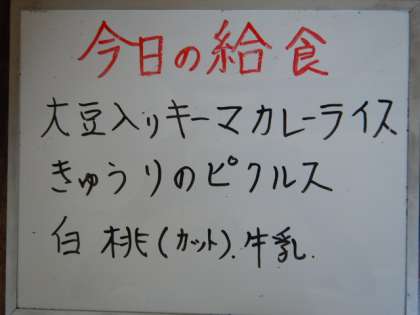 今日の給食
大豆入りキーマカレーライス
きゅうりのピクルス
白桃(カット).牛乳.